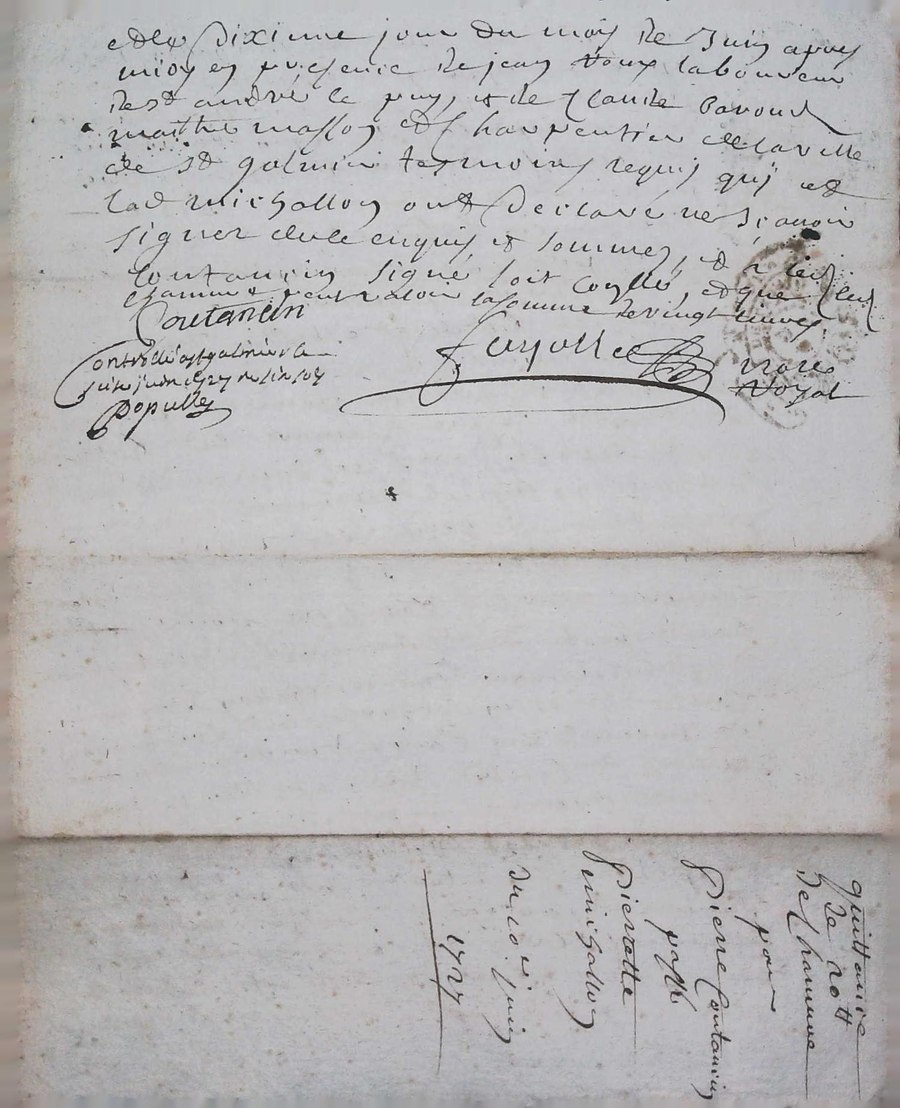 et le Dixieme jour du mois de Juin apres
midy en presence de jean laboureur
de st andré le puy, et de Claude
maitre masson et Charpentier de la ville
de st galmier tesmoins requis qui et
lad michallon ont Declaré ne scavoir
signer de ce enquis et sommés, et led
Coutancin signé soit Conllé, et que
chanvre peut valoir la somme de vingt livres
Coutancin
Controllé a st galmier le
juin 1727
Populle
Fayolle
Nore
Royal
quittance
de 20 tt
De Chanvre
pour
Pierre Coutancin
passé
Pierrette
michallon
Du 10e juin
1727